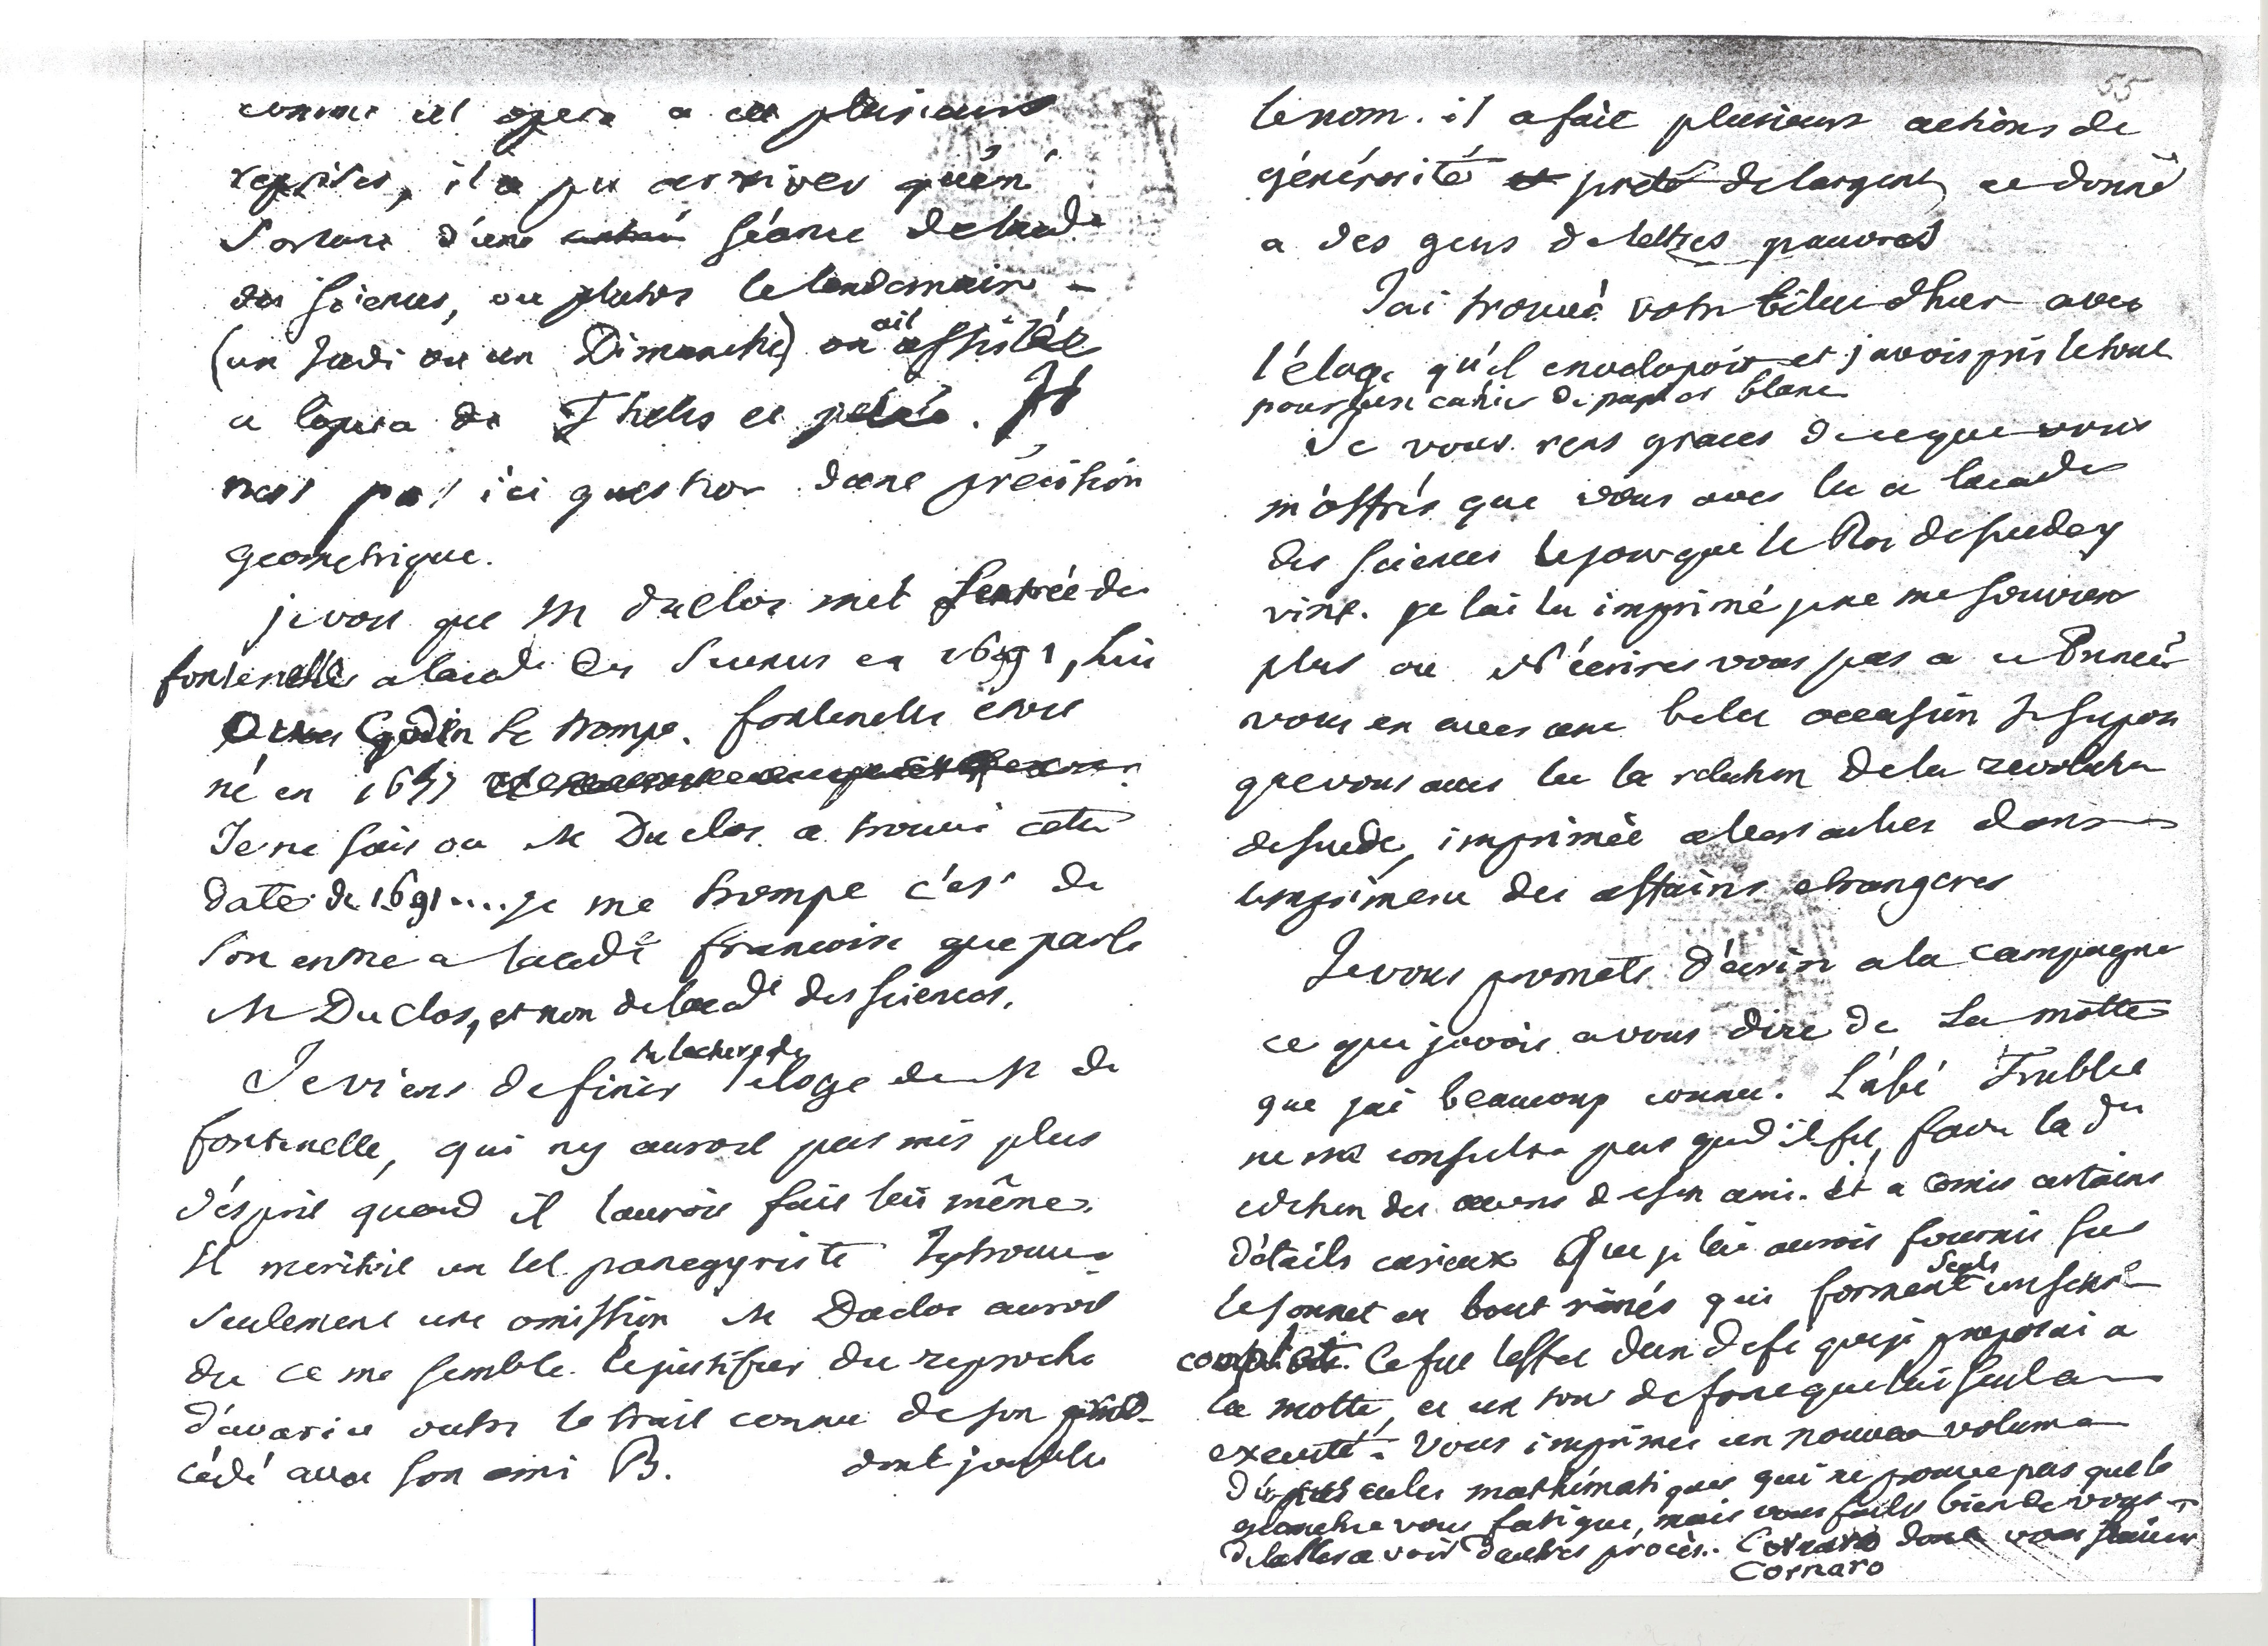 comme cet opera a eu plusieurs
reprises, il a pu arriver qu'en
sortant d'une séance de lacade
des sciences, ou plutos le lendemain
(un Jeudi ou un Dimanche) on ait assisté
a lopera de Thetis et pelée. Il
nest pas ici question dune précision
geometrique.
je vois que M Duclos met l'entrée de
fontenelle a lacade des Sciences en 1691,
Godin se trompe. fontenelle étoit
né en 1657
Je ne sais ou M Duclos a trouvé cette
date de 1691.... je me trompe c'est de
son entrée a lacade francoise que parle
M Duclos, et non de lacade des sciences.
Je viens de finir la lecture de leloge de M de
fontenelle, qui ny auroit pas mis plus
d'esprit quand il lauroit fait lui même.
Il meritoit un tel panegyriste Jy trouve
seulement une omission M Duclos auroit
du ce me semble le justifier du reproche
d'avarice outre le trait connu de son procédé
cédé avec son ami B. dont j'oublie
55
le nom. il a fait plusieurs actions de
générosité et preté de largent, et donné
a des gens de lettres pauvres
Jai trouvé votre billet dhier avec
l'éloge qu'il envelopoit et j'avois pris le tout
pour un cahier de papier blanc
Je vous rens graces de ce que vous
m'offrés que vous avés lu a lacade
des sciences le jour que le Roi de suede y
vint. je lai lu imprimé je ne me souviens
plus ou N'ecrives vous pas a ce Prince
vous en aves une belle occasion Je supose
que vous aves lu la relation de la revolution
de suede, imprimée a Versailles dans
limprimerie des affaires etrangeres
Je vous promets d'ecrire a la campagne
ce que javois a vous dire de La motte
que jai beaucoup connu. L'abé Trublet
ne me consulta pas quand il fit faire la
edition des œuvres de son ami. il a omis certains
détails curieux que je lui aurois fournis sur
le sonnet en bout rimés qui forment seuls un sens
complet. Ce fut leffet dun defi que je proposai a
la motte, et un tour de force que lui seul a
executé. Vous imprimés un nouveau volume
d'opuscules mathématiques qui ne prouve pas que la
geometrie vous fatigue, mais vous faites bien de vous
Cornaro